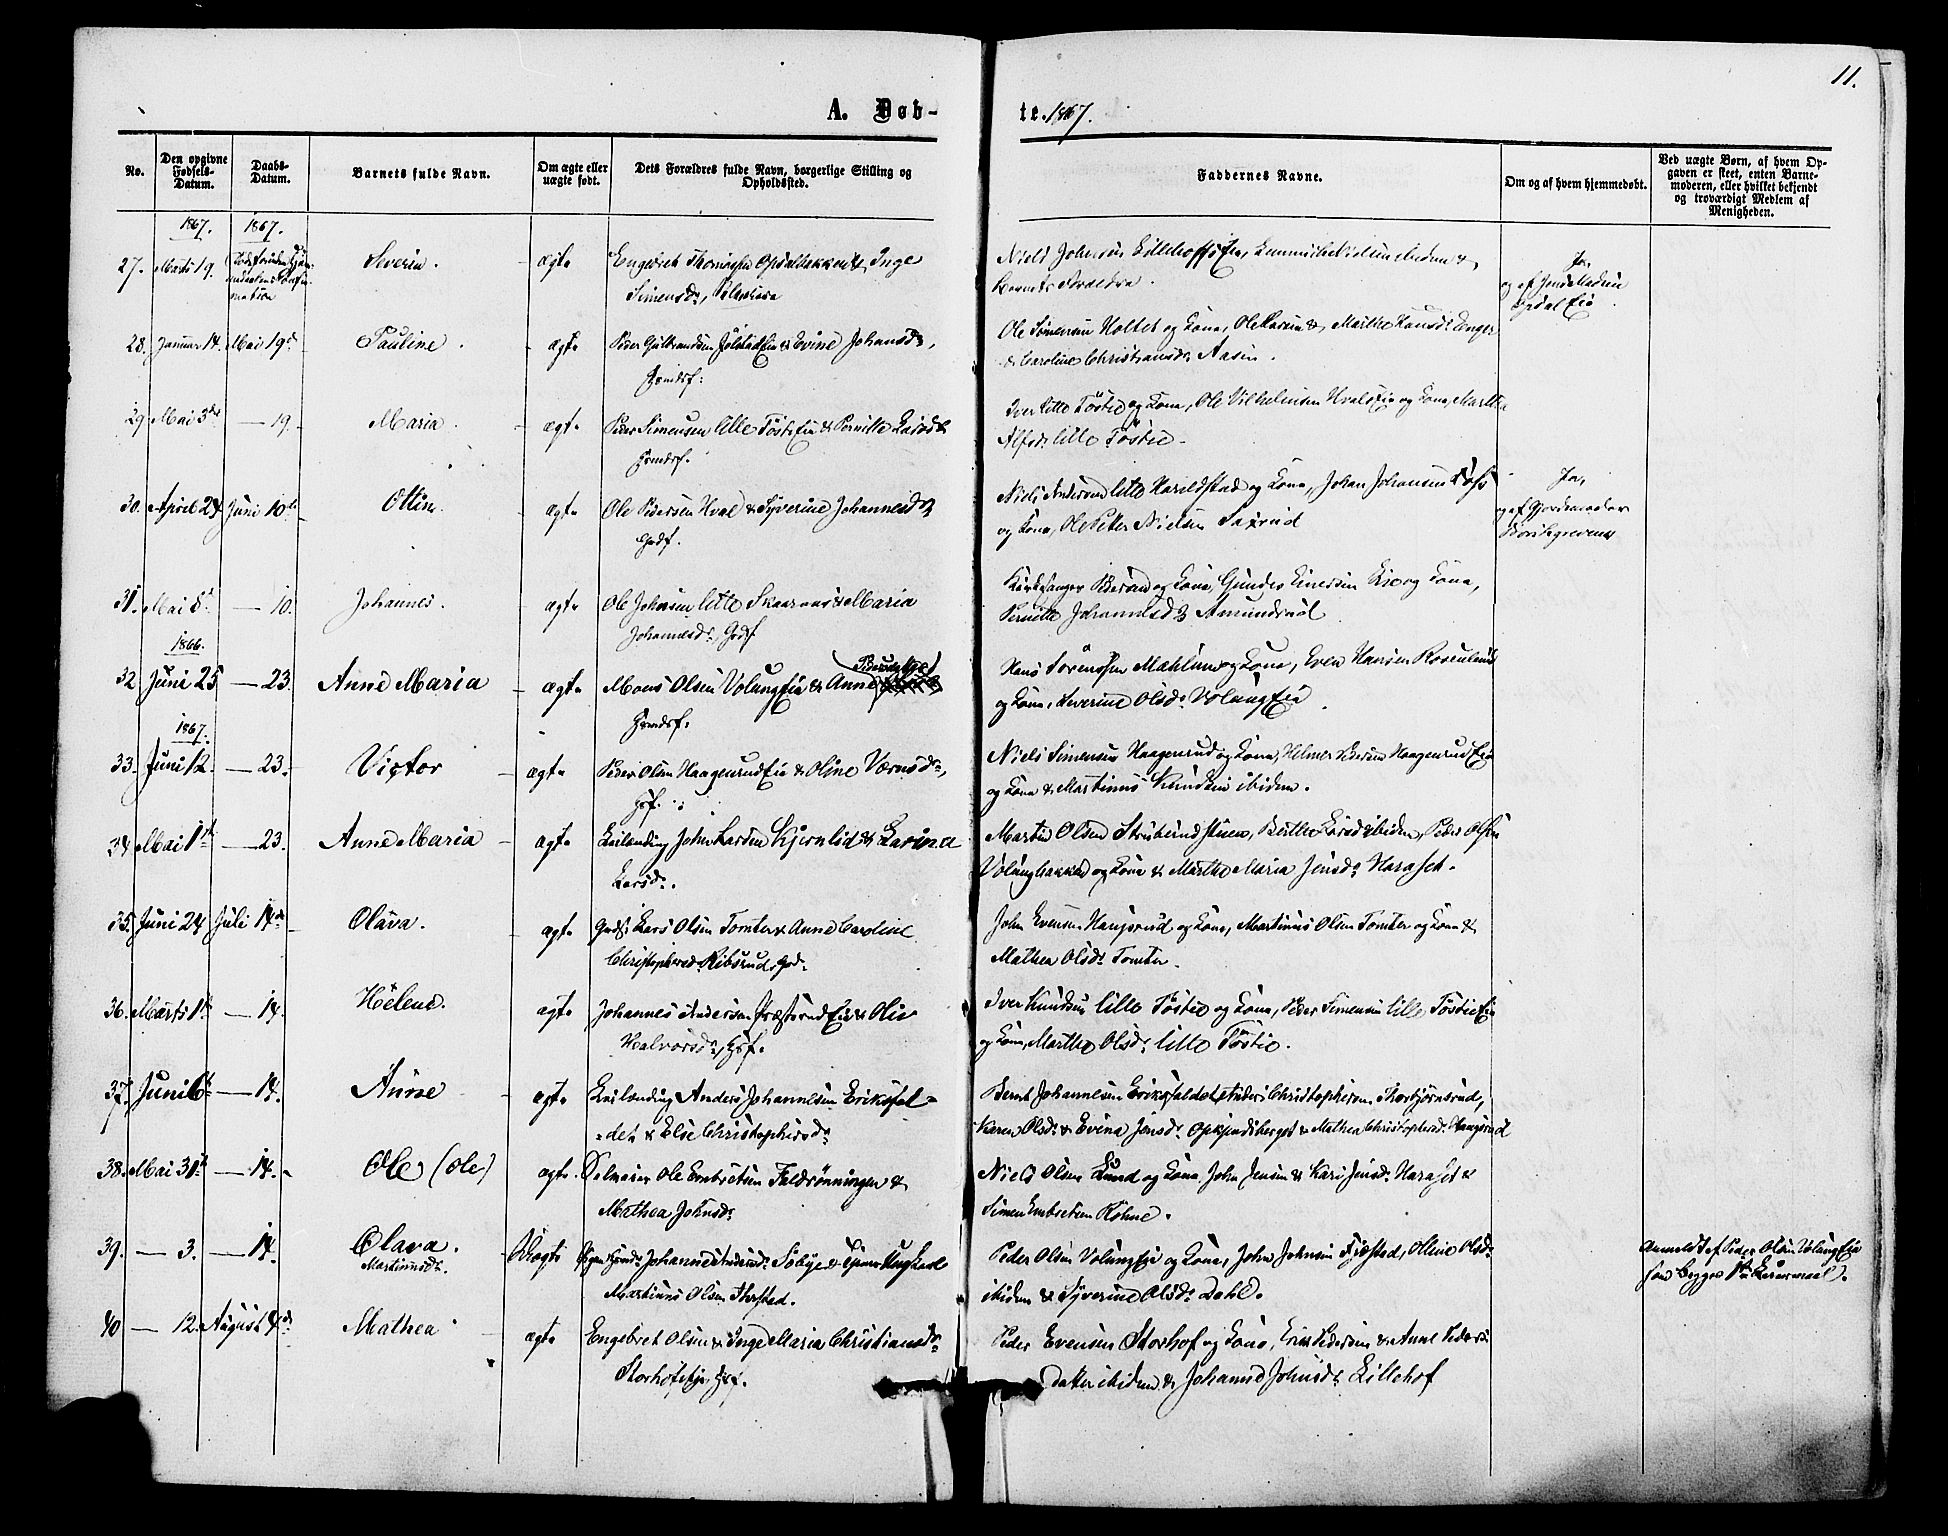 11.
A. Døb-
te. 1867.
No.
Den opgivne Fødsels-Datum.
Daabs-Datum.
Barnets fulde Navn.
Om ægte eller uægte født.
Dets Forældres fulde Navn, borgerlige Stilling og Opholdssted.
Faddernes Navne.
Om og af hvem hjemmedøbt.
Ved uægte Børn, af hvem Opgaven er skeet, enten Barnemoderen, eller hvilket bekjendt og troværdigt Medlem af Menigheden.
1867. 1867.
27. Marts 19. Severin. ægte Engebret Thomassen Opsalbakken & Inge
Simensdr,
Niels Johnsen
Barnets Forældre.
Ja,
og af Jens Madsen
Opdal Eie
28. Januar 14. Mai 19de Pauline. ægte Peder Gulbrandsen Eie & Evine Johansdr,
Huusdf:
Ole Simensen Holtet og Kone, Ole Larsen & Marthe Hansdr Enger
& Caroline Christiansdr Aasen.
29 Mai 3die — 19. Maria. ægte Peder Simensen lille Tøsti Eie & Pernille Larsdr
Iver lille Tøstie og Kone, Ole Vilhelmsen Hvals Eie og Kone, Marthe
Alfsdr lille Tøstie.
30. April 24 Juni 10de Otline. ægte Ole Pedersen Hval & Syverine Johannesdr
Gmdf.
Niels Andersen lille Harildstad og Kone, Johan Johansen
og Kone, Ole Petter Nielsen
Ja,
og af Gjordemoder
Borchgrevink
31. Mai 8de — 10. Johannes. ægte Ole Johnsen lille Skaaraas & Maria
Johannesdr, Gmdf
Kirkesanger Pedersen og Kone, Gunder Einersen og Kone,
Pernille Johannesdr Amundrud
1866.
32 Juni 25 — 23. Anne Maria – ægte Mons Olsen Volung Eie & Anne
Hans Sørensen Mæhlum og Kone, Even Hansen Rosenlund
og Kone, Severine Olsdr Volung Eie
1867.
33. Juni 12. — 23. Victor – ægte Peder Olsen Haagensrud Eie & Oline Værnsdr,
Hsf.
Niels Simensen Haagensrud og Kone, Helmer Larsen Haagensrud Eie
og Kone & Martinus Knudsen ibidem.
34 Mai 1ste — 23. Anne Maria – ægte Leilænding John Larsen Kjernlid & Karina
Larsdr.
Martin Olsen Struberudstuen, Berthe Larsdr ibidem, Peder Olsen
Volungbakken og Kone & Marthe Maria Jensdr Haraset.
35. Juni 24 Juli 14de Olava. ægte Gmdf Lars Olsen Tomter & Anne Caroline
Christophersdr Ribsrud,
John Evensen Haugsrud og Kone, Martinus Olsen Tomter og Kone &
Mathea Olsdr Tomter.
36. Marts 1ste — 14. Helene. ægte Johannes Andersen Præsterud Eie & Olive
Halvorsdr, Hsf.
Iver Knudsen lille Tøstie og Kone, Peder Simensen lille Tøstie Eie
og Kone, Marthe Olsdr lille Tøstie.
37. Juni 6te — 14. Anne – ægte Leilænding Anders Johannesen Eriksfal-
det & Else Christophersdr
Bernt Johannesen Eriksfaldet, Anders Christophersen Thorbjørnsrud,
Karen Olsdr & Evina Jensdr Opkjendsberget & Mathea Christophersdr Haugsrud
38. Mai 31te — 14. Ole (Ole) ægte Selveier Ole Embretsen Faldrønningen &
Mathea Johnsdr
Niels Olsen Lund og Kone, John Jensen & Kari Jensdr Haraset &
Simen Embretsen Kohne.
39. — 3. — 14. Olava. Martinusdr. Uægte Pigen Johanne Andersdr Sobye & Ungkarl
Martinus Olsen Harstad.
Peder Olsen Volung Eie og Kone, John Johnsen Fjæstad, Otline Olsdr
ibidem & Syverine Olsdr Dahl.
Anmeldt af Peder Olsen Volung Eie
som begges 1ste Leiermaal.
40 — 12. August 4de Mathea ægte Engebret Olsen & Inge Maria Christiansdr
Storhofseje, Hsf.
Peder Evensen Storhof og Kone, Peder Pedersen & Anne Peders
datter ibidem & Johanne Johnsdr Lillehof